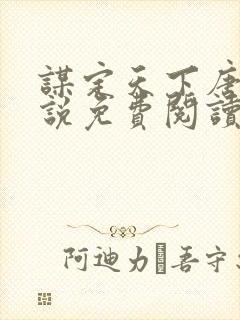 謀定天下唐
說免費閱讀
阿迪力·吾守